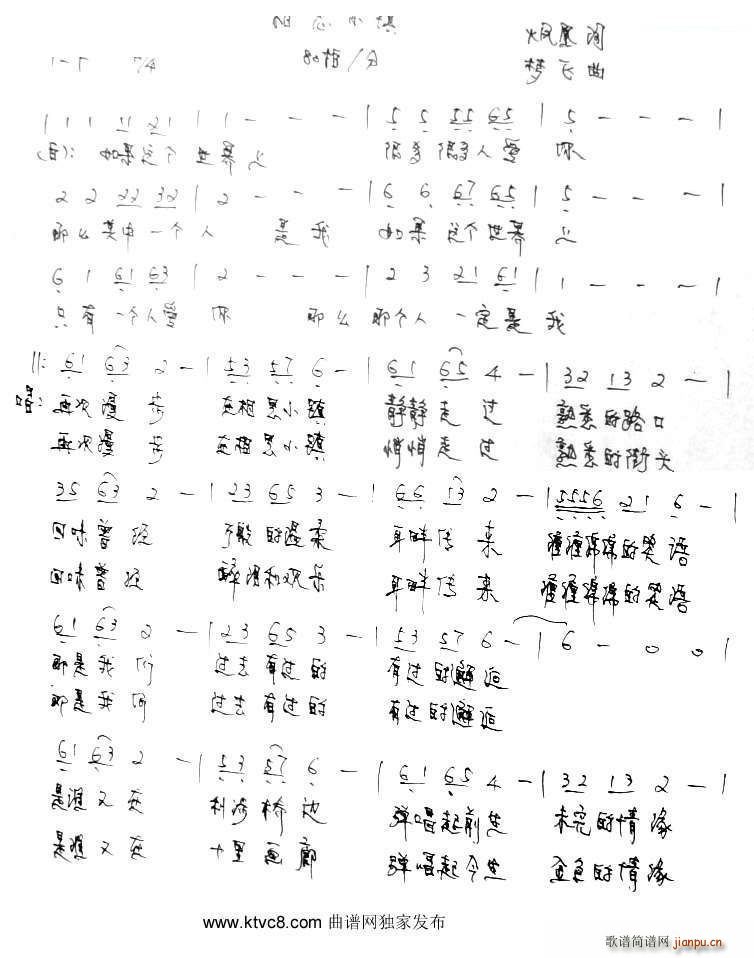 80拍/分
梦飞曲
1 1 11 21 | 1 - - - | 5 5 55 65 | 5 - - - |
(白): 如果这个世界上 很多很多人爱你
2 2 22 32 | 2 - - - | 6 6 67 65 | 5 - - - |
那么其中一个人 是我 如果这个世界上
6 1 61 63 | 2 - - - | 2 3 21 61 | 1 - - - |
只有一个人爱你 那么那个人一定是我
||: 61 63 2 - | 53 57 6 - | 61 65 4 - | 32 13 2 - |
唱: 再次漫步 在相思小镇 静静走过 熟悉的路口
再次漫步 在相思小镇 悄悄走过 熟悉的街头
35 63 2 - | 23 65 3 - | 66 13 2 - | 5556 21 6 - |
回味曾经 的温柔 耳畔传来 的笑语
回味曾经 和欢乐 耳畔传来 的笑语
61 63 2 - | 23 65 3 - | 53 57 6 - | 6 - 0 0 |
那是我们 过去有过的 有过的邂逅
那是我们 过去有过的 有过的邂逅
61 63 2 - | 53 57 6 - | 61 65 4 - | 32 13 2 - |
是谁又在 桥边 弹唱起前世 未完的情缘
是谁又在 十里画廊 弹唱起今生 的情缘
www.ktvc8.com 曲谱网独家发布
歌谱简谱网 jianpu.cn